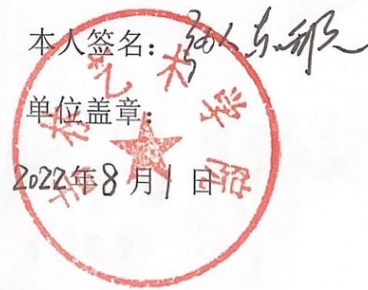 本人签名：
单位盖章：
艺术学院
2022年8月1日